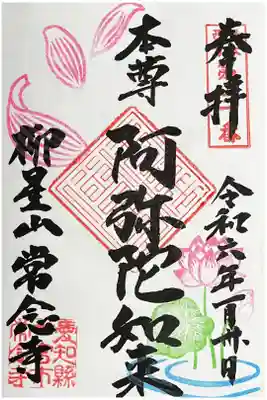 奉拝
令和六年一月廿日
本尊
阿弥陀如来
柳星山 常念寺
愛知縣